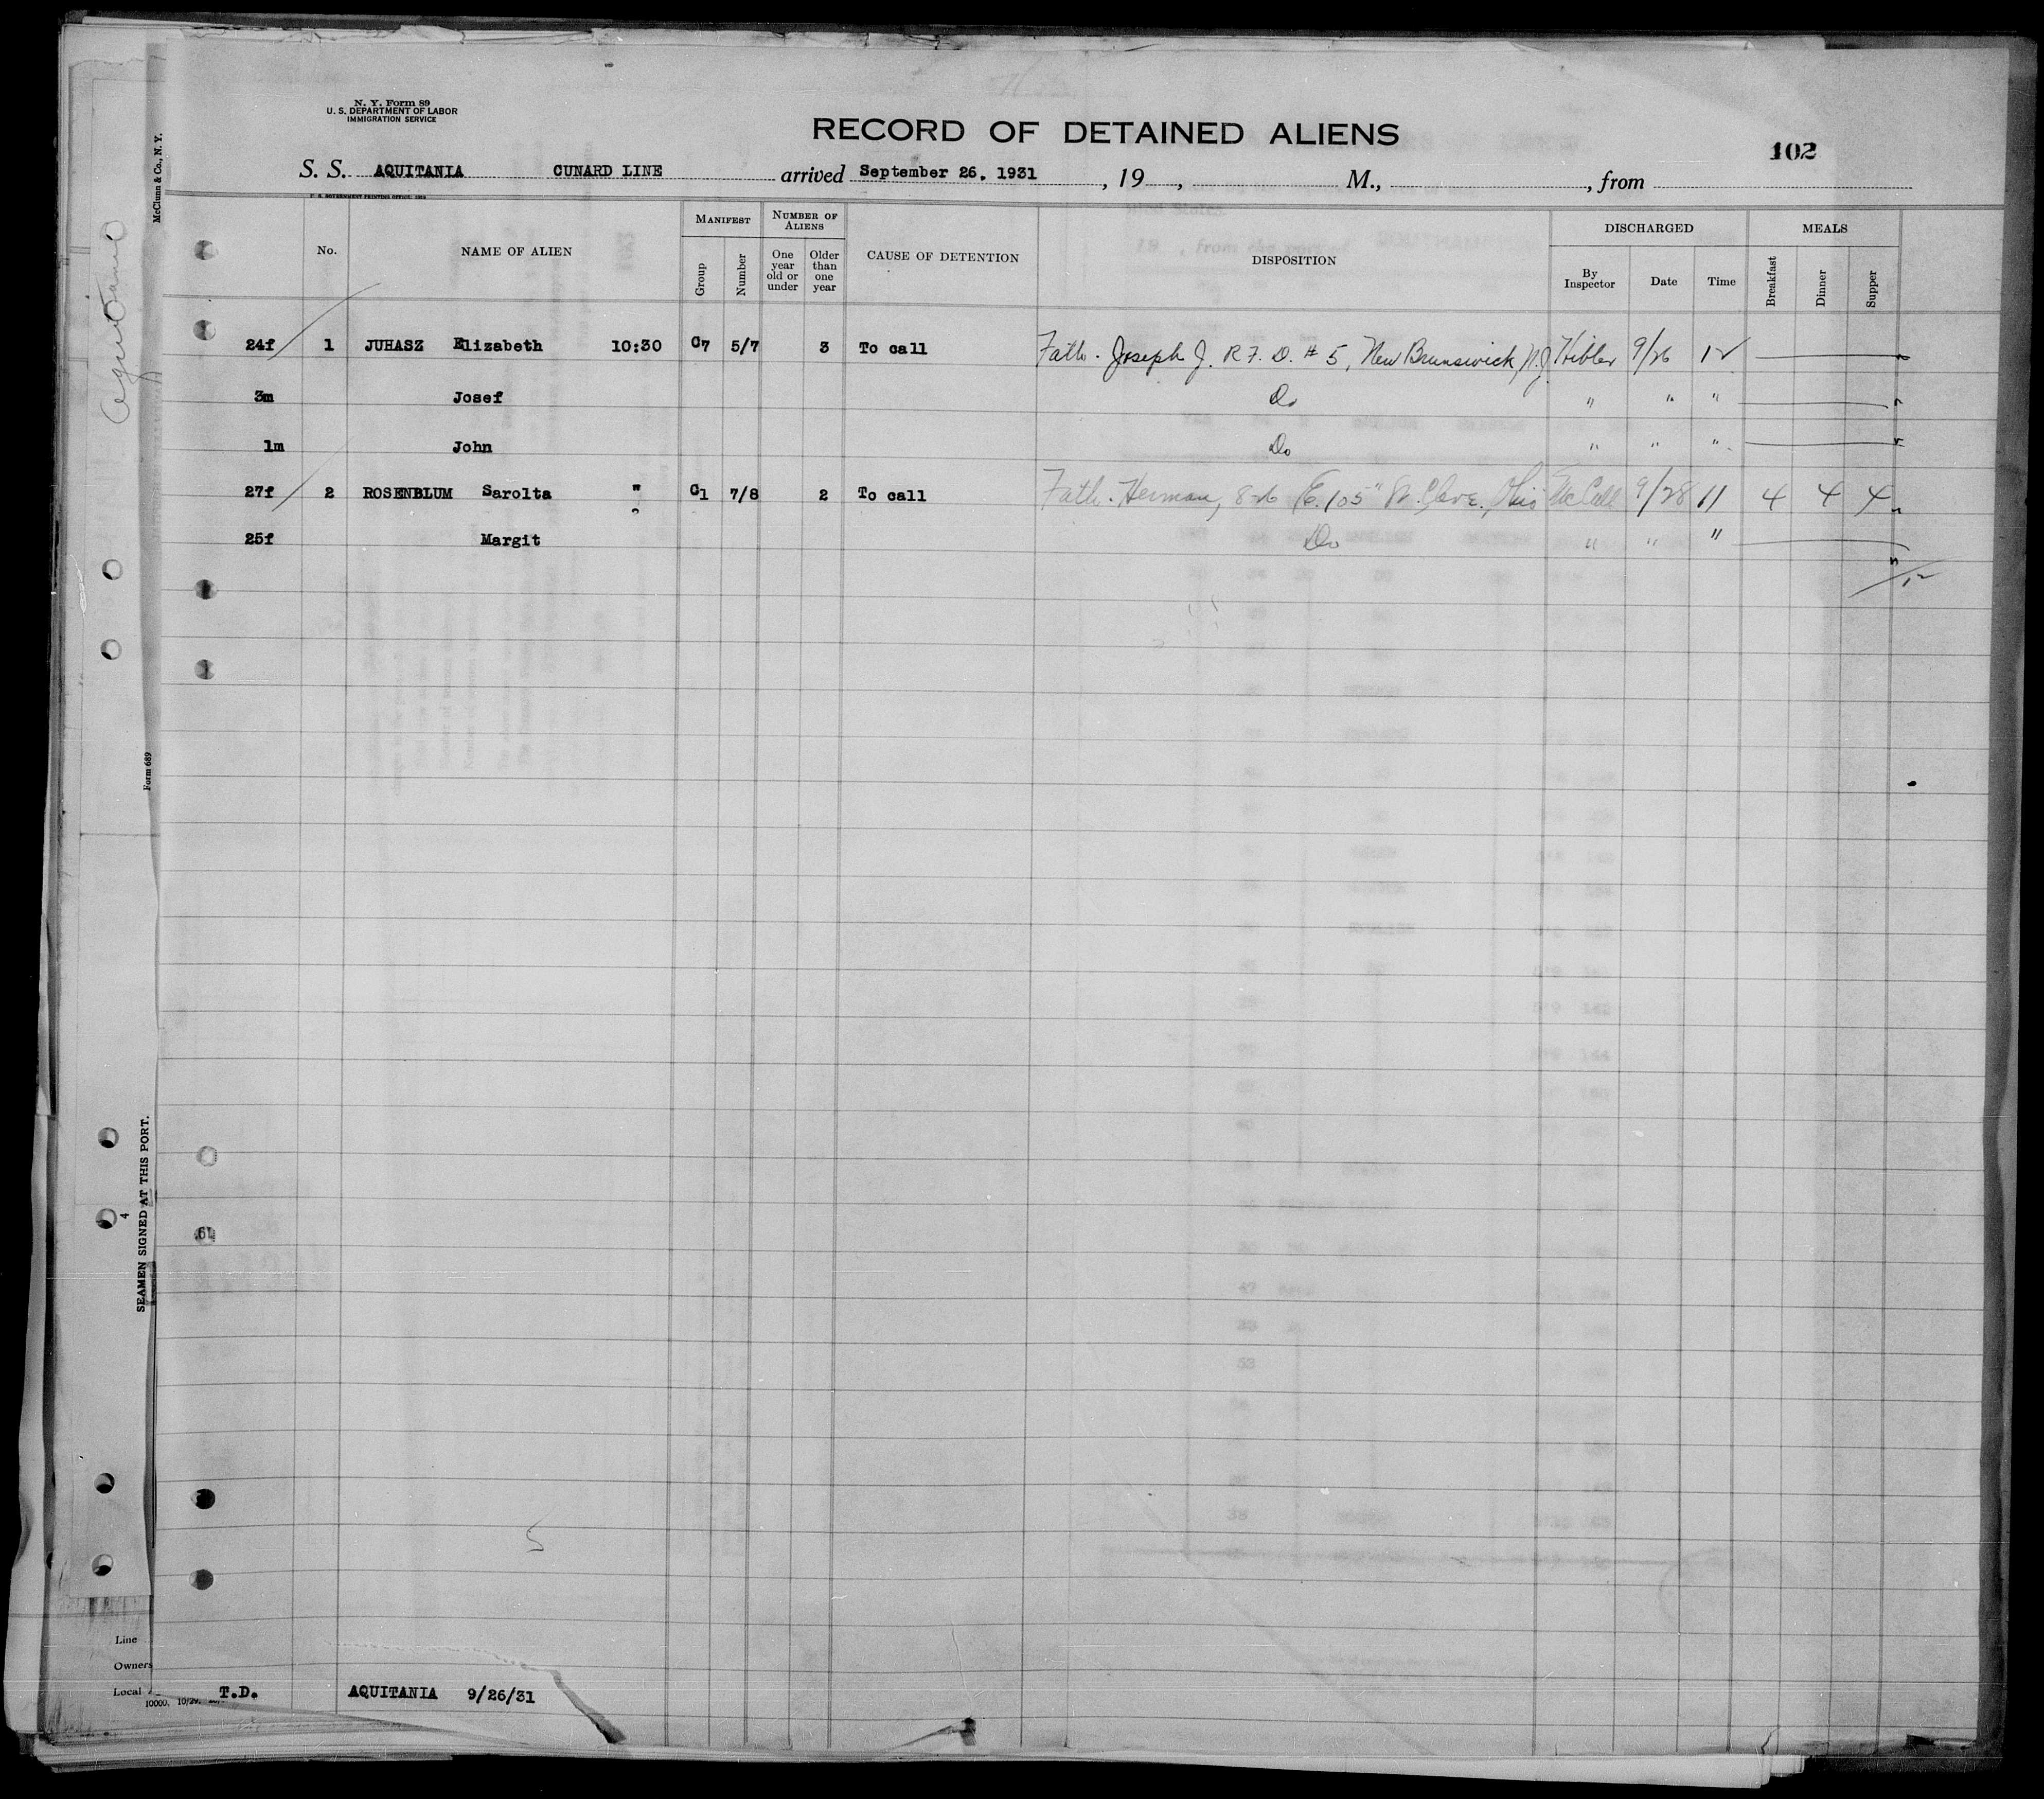 N. Y. Form 89
U. S. DEPARTMENT OF LABOR
IMMIGRATION SERVICE
RECORD OF DETAINED ALIENS
102
S. S. AQUITANIA CUNARD LINE arrived September 26, 1931, 19 , M., , from
U. S. GOVERNMENT PRINTING OFFICE
McClunn & Co., N. Y.
Aquitania
No. NAME OF ALIEN MANIFEST Group Number NUMBER OF ALIENS One year old or under Older than one year CAUSE OF DETENTION DISPOSITION DISCHARGED By Inspector Date Time MEALS Breakfast Dinner Supper
24f 1 JUHASZ Elizabeth 10:30 C7 5/7 3 To call Fath. Joseph J. R.F.D. # 5, New Brunswick, N.J. Hibler 9/26 12
3m Josef Do " " "
1m John Do " " "
27f 2 ROSENBLUM Sarolta " C1 7/8 2 To call Fath. Herman, 826 E. 105" St. Cleve. Ohio McCall 9/28 11 4 4 4
25f Margit Do " " "
12
Form 689
SEAMEN SIGNED AT THIS PORT.
4
19
5
Line
Owners
Local
10000, 10/29
T.D. AQUITANIA 9/26/31